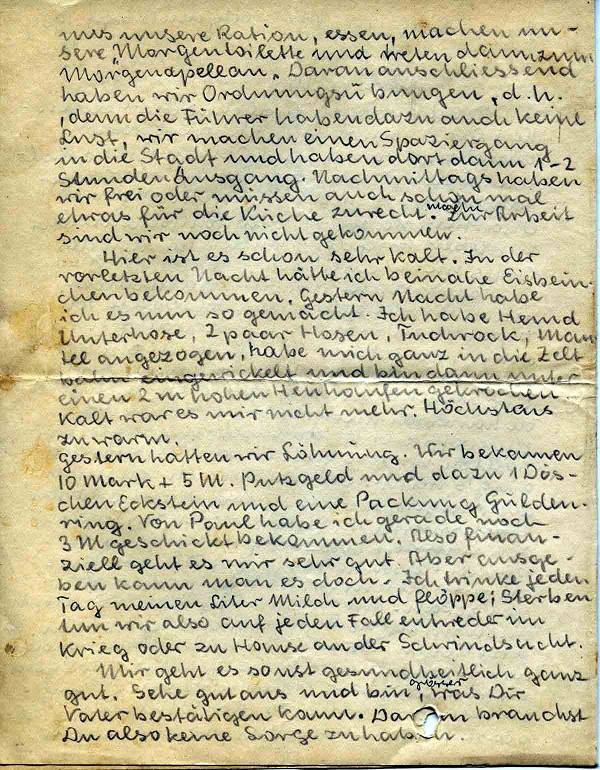 uns unsere Ration, essen, machen un-
sere „Morgentoilette und treten dann zum
Morgenapell an. Daran anschliessend
haben wir Ordnungsübungen, d.h.
, denn die Führer haben dazu auch keine
Lust, wir machen einen Spaziergang
in die Stadt und haben dort dann 1-2
Stunden Ausgang. Nachmittags haben
wir frei oder müssen auch schon mal
etwas für die Küche zurecht machen. Zur Arbeit
sind wir noch nicht gekommen.
Hier ist es schon sehr kalt. In der
vorletzten Nacht hätte ich beinahe Eisbein-
chen bekommen. Gestern Nacht habe
ich es nun so gemacht. Ich habe Hemd
Unterhose, 2 paar Hosen, Tuchrock, Man-
tel angezogen, habe mich ganz in die Zelt
bahn eingewickelt und bin dann unter
einen 2 m hohen Heuhaufen gekrochen
Kalt war es mir nicht mehr. Höchstens
zu warm.
Gestern hatten wir Löhnung. Wir bekamen
10 Mark + 5 M. Putzgeld und dazu 1 Dös-
chen Eckstein und eine Packung Gülden-
ring. Von Paul habe ich gerade noch
3 M geschickt bekommen. Also finan-
ziell geht es mir sehr gut. Aber ausge-
ben kann man es doch. Ich trinke jeden
Tag meinen Liter Milch und flöppe; Sterben
tun wir also auf jeden Fall entweder im
Krieg oder zu Hause an der Schwindsucht.
Mir geht es sonst gesundheitlich ganz
gut. Sehe gut aus und bin, was Dir
Vater bestätigen kann. Darum brauchst
Du also keine Sorge zu haben.